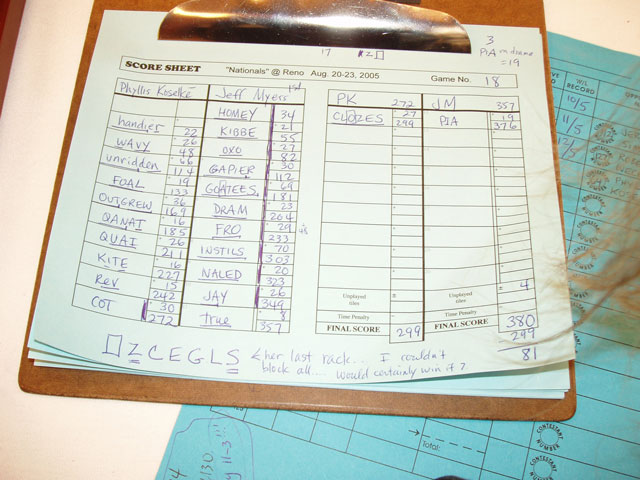 3
PIA on dime
=19
17 #2□
SCORE SHEET "Nationals" @ Reno Aug. 20-23, 2005 Game No. 18
Phyllis Koselke Jeff Myers 1st
HOMEY 34
handier 22 KIBBE 21
26 55
WAVY 48 OXO 27
unridden 66 82
114 GAPIER 30
FOAL 19 112
133 GOATEES 69
OUTGREW 36 181
169 DRAM 23
QANAT 16 204
185 FRO 29
QUAI 26 233
211 INSTILS 70
KITE 16 303
227 NALED 20
Rev 15 323
242 JAY 26
COT 30 349
272 true 8
357
PK 272 JM 357
CLOZES 27 PIA 19
299 376
Unplayed tiles ± Unplayed tiles ± 4
Time Penalty - Time Penalty -
FINAL SCORE 299 FINAL SCORE 380
299
81
□ZCEGLS < her last rack.. I couldn't
block all.... would certainly win it?
W/L
RECORD
10/5
11/5
12/5
CONTESTANT NUMBER
Total:
CONTESTANT NUMBER
11-3!!!